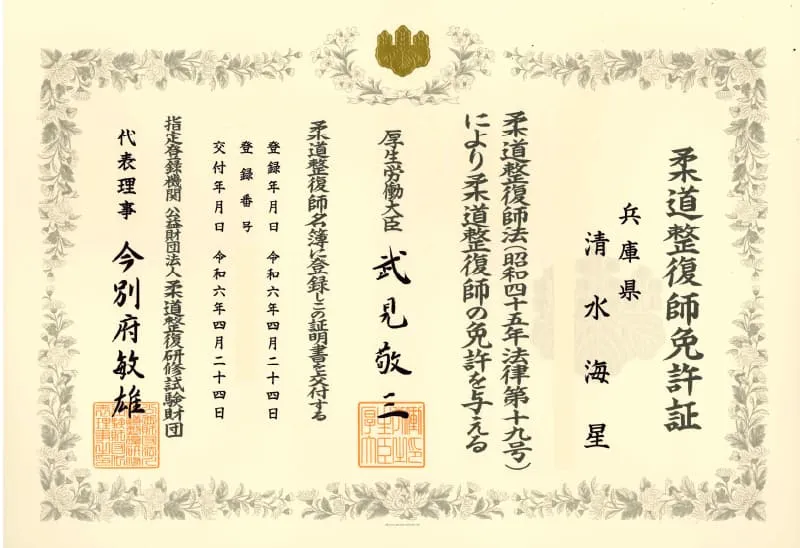 柔道整復師免許証
兵庫県
清水海星
柔道整復師法(昭和四十五年法律第十九号)
により柔道整復師の免許を与える
厚生労働大臣 武見敬三
柔道整復師名簿に登録しこの証明書を交付する
登録年月日 令和六年四月二十四日
登録番号
交付年月日 令和六年四月二十四日
指定登録機関 公益財団法人 柔道整復研修試験財団
代表理事 今別府敏雄